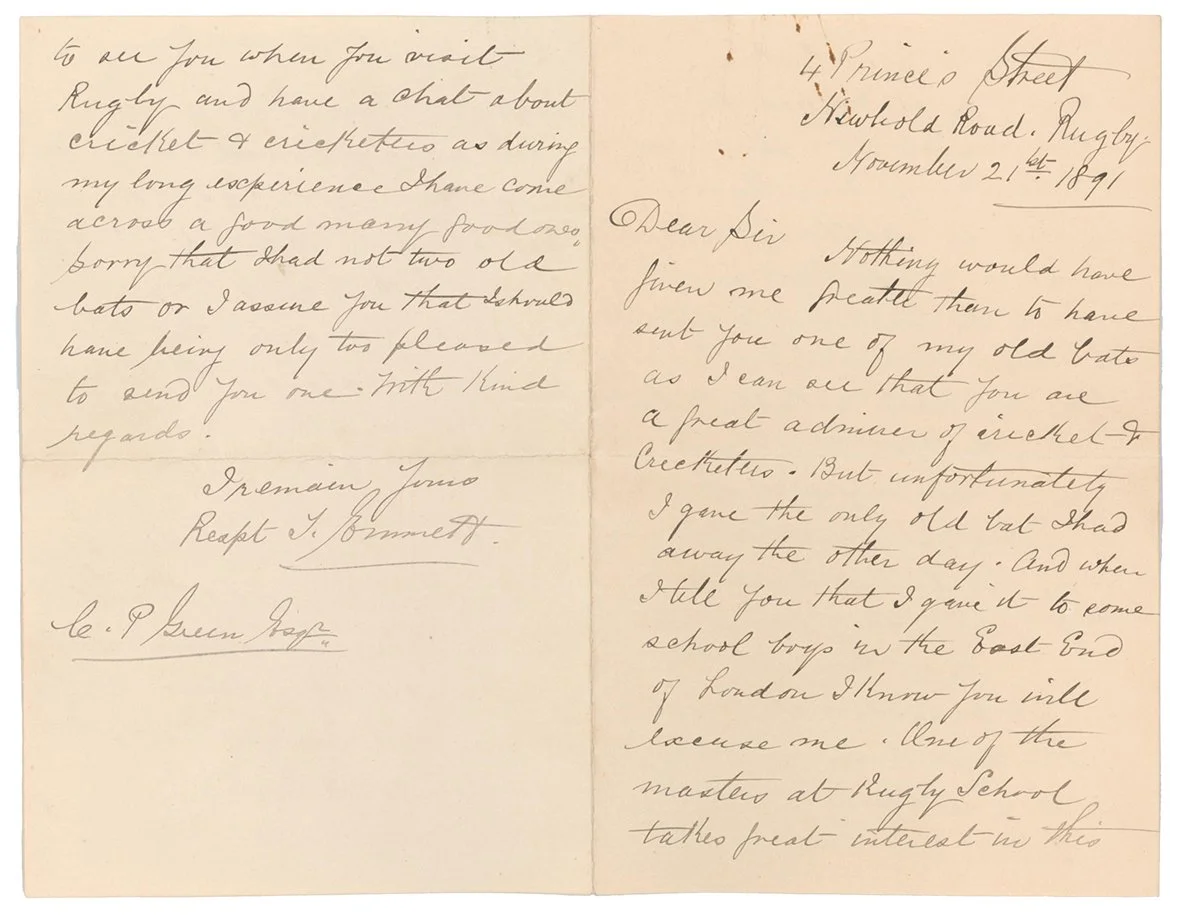 4 Prince's Street
Newbold Road. Rugby.
November 21st. 1891
Dear Sir
Nothing would have
given me greater than to have
sent you one of my old bats
as I can see that you are
a great admirer of cricket &
Cricketers. But unfortunately
I gave the only old bat I had
away the other day. And when
I tell you that I gave it to some
school boys in the East End
of London I know you will
excuse me. One of the
masters at Rugby School
takes great interest in this
to see you when you visit
Rugby and have a chat about
cricket & cricketers as during
my long experience I have come
across a good many good ones,
sorry that I had not two old
bats or I assure you that I should
have being only too pleased
to send you one. With Kind
regards.
I remain Yours
Respt T. Emmett.
C. P Green Esqr